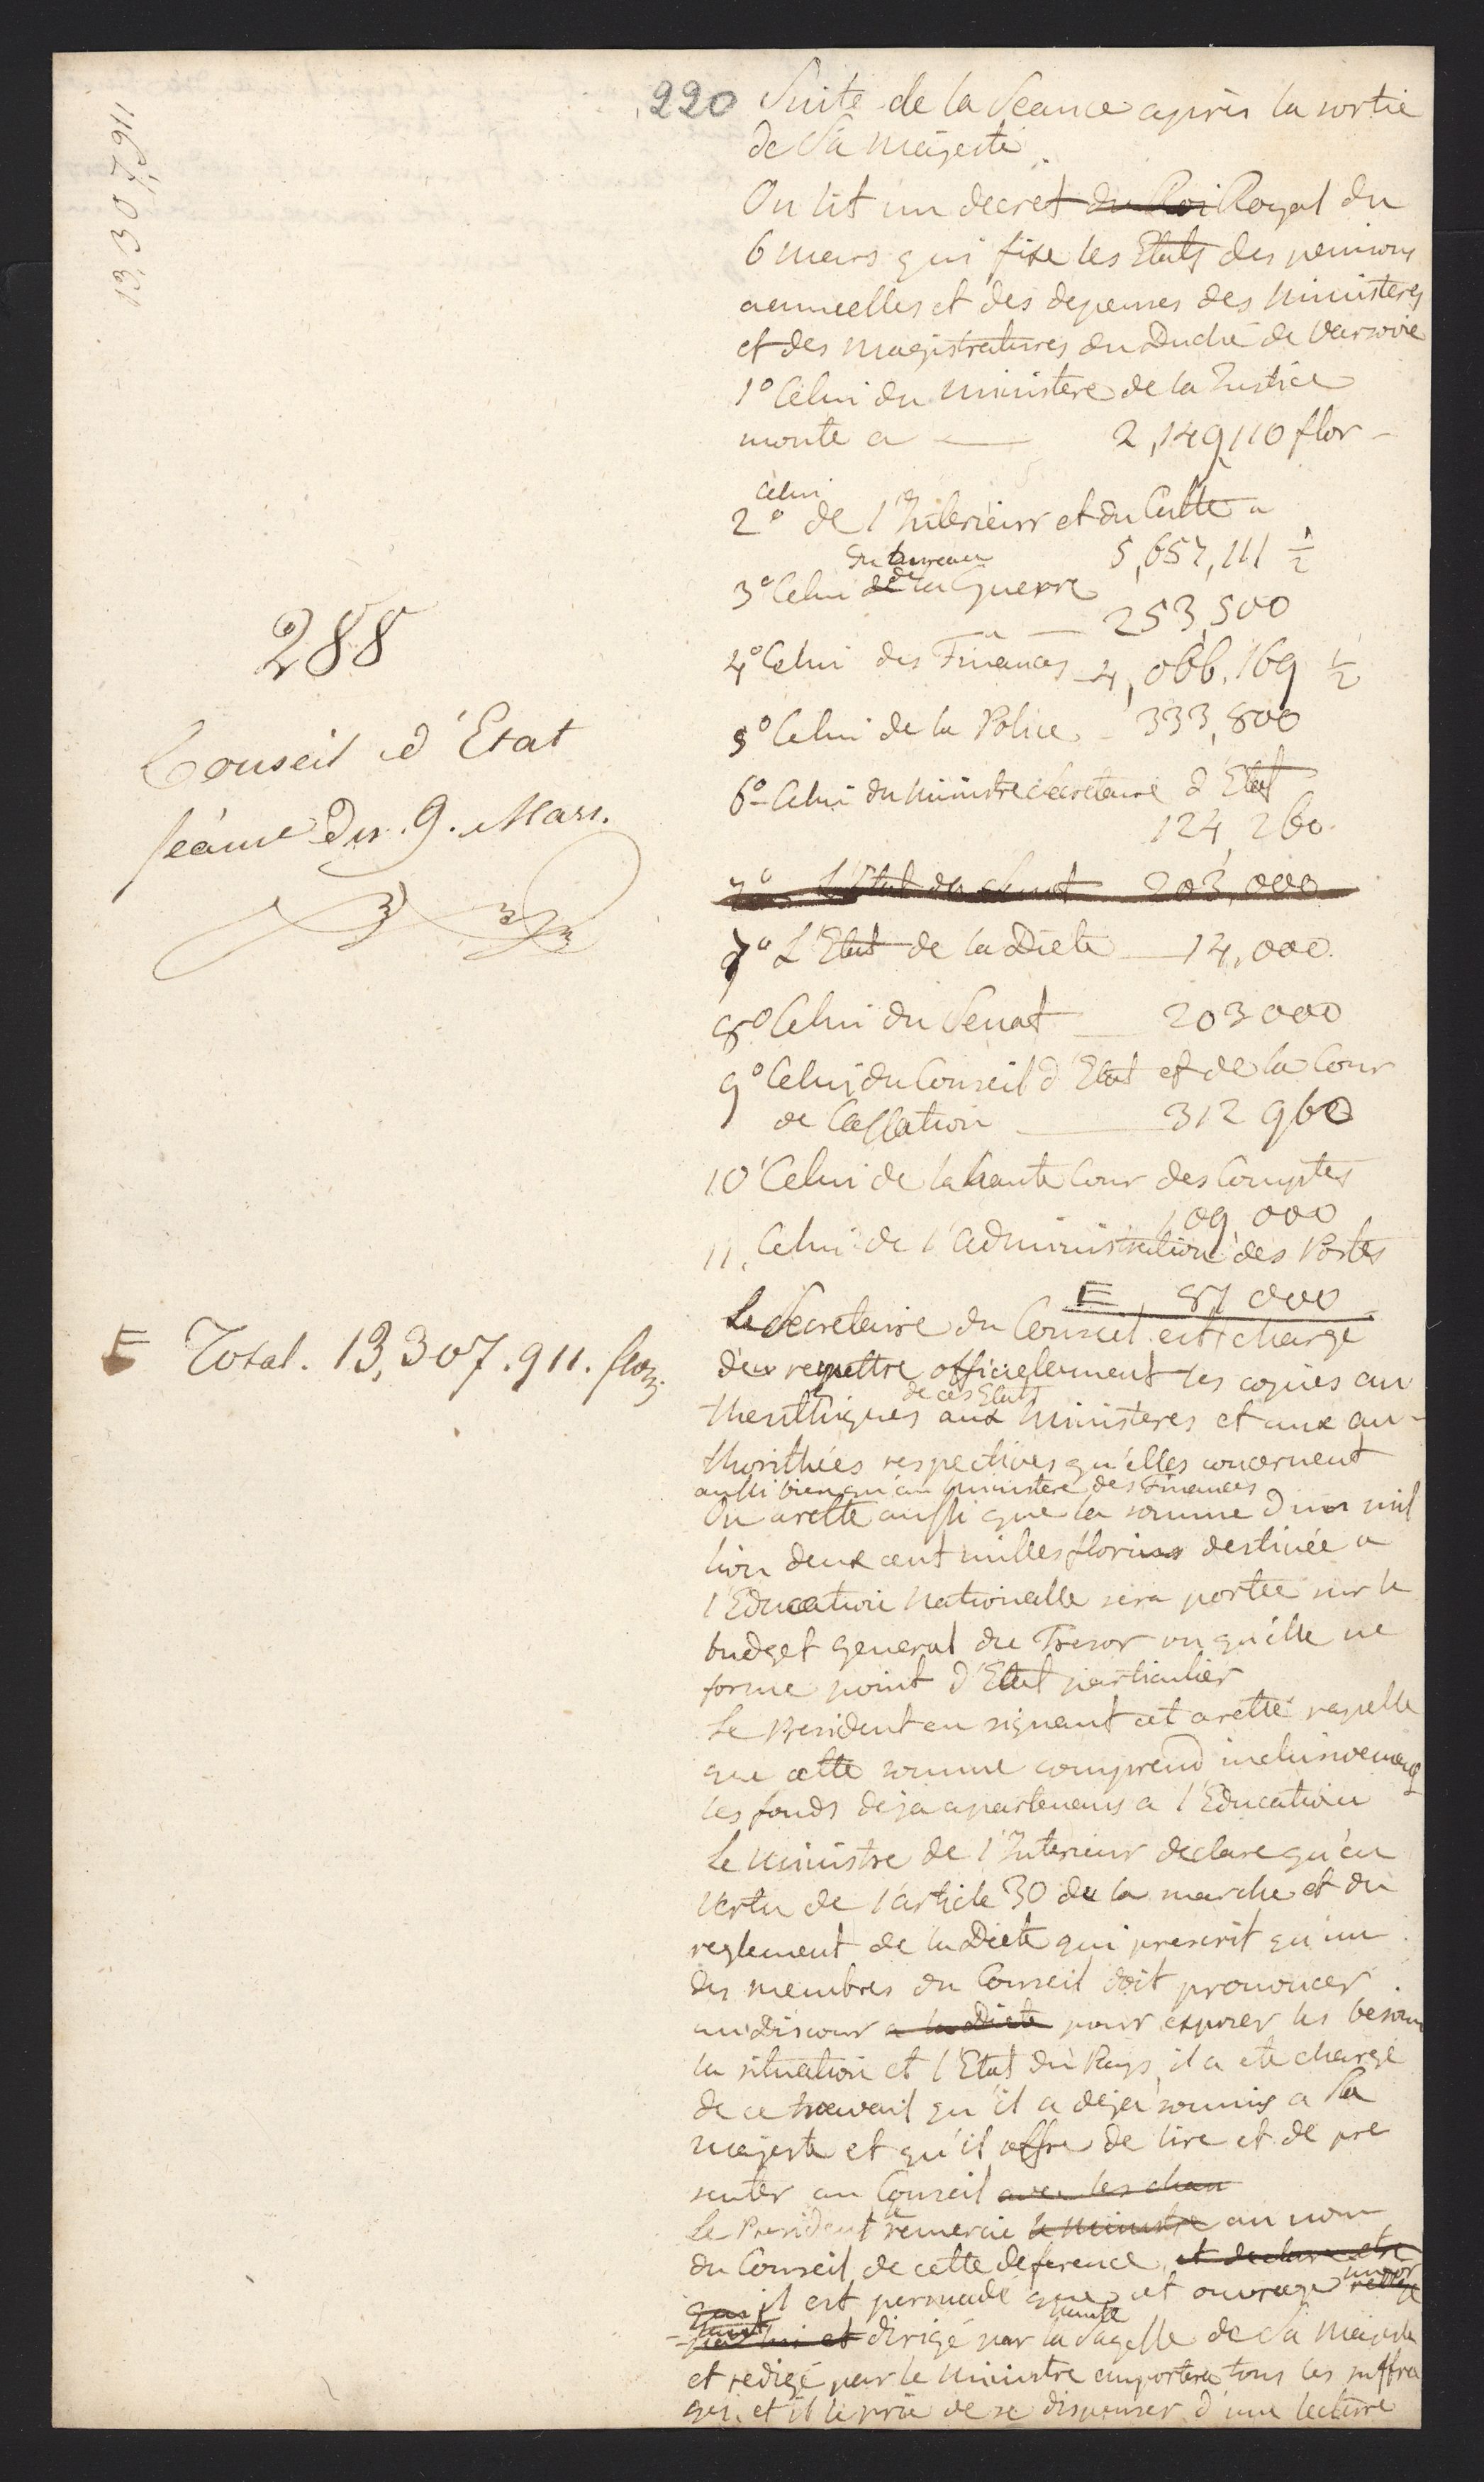 13,307,911
220 Suite de la Seance après la sortie
de Sa Majesté
On lit un decret du Roi Royal du
6 mars qui fixe les Etats des pensions
annuelles et des depenses des Ministeres
et des magistratures du Duché de Varsovie
1º Celui du ministere de la Justice
monte a — 2,149,110 flor -
celui
2º de l'Interieur et du Culte a
5,657,111 ½
du bureau
3º Celui de la Guerre
253,500
4º Celui des Finances 4,066.169 ½
5º Celui de la Police - 333,800
6º Celui du Ministre Secretaire d'Etat
124,260
7º L'Etat du Senat 203,000
7º L'Etat de la Diete — 14,000.
8º Celui du Senat — 203000
9º Celui du Conseil d'Etat et de la Cour
de Cassation — 312960
10 Celui de la haute Cour des Comptes
109,000
11. Celui de l'administration des Postes
F 87000
288
Conseil d'Etat
Séance du 9. Mars.
F Total. 13,307.911. flor.
Le Secretaire du Conseil est chargé
d'en remettre officielement les copies au
de ces Etats
thentiques aux Ministeres et aux au-
thorithées respectives qu'elles concernent
aussi bien qu'au ministere des Finances
On arette aussi que la somme d'un mil
lion deux cent milles florins destinée a
l'Education Nationalle sera portée sur le
budget general du Tresor vu qu'elle ne
forme point d'Etat particulier
Le President en signant cet aretté rapelle
que cette somme comprend inclusivement
les fonds deja apartenans a l'Education
Le Ministre de l'Interieur declare qu'en
vertu de l'article 30 de la marche et du
reglement de la Diete qui prescrit qu'un
des membres du Conseil doit prononcer
un discour a la Diete pour exposer les besoins
la situation et l'Etat du Pays, il a eté chargé
de ce travail qu'il a deja soumis a Sa
Majesté et qu'il offre de lire et de pre
senter au Conseil avec les chan
Le President le remercie le Ministre au nom
du Conseil de cette deference et declare etre
que il est persuadé que cet ouvrage
par lui et dirigé par la Sagesse de Sa Majesté
et redigé par le Ministre emportera tous les suffra
ges et il le prie de se dispenser d'une lecture